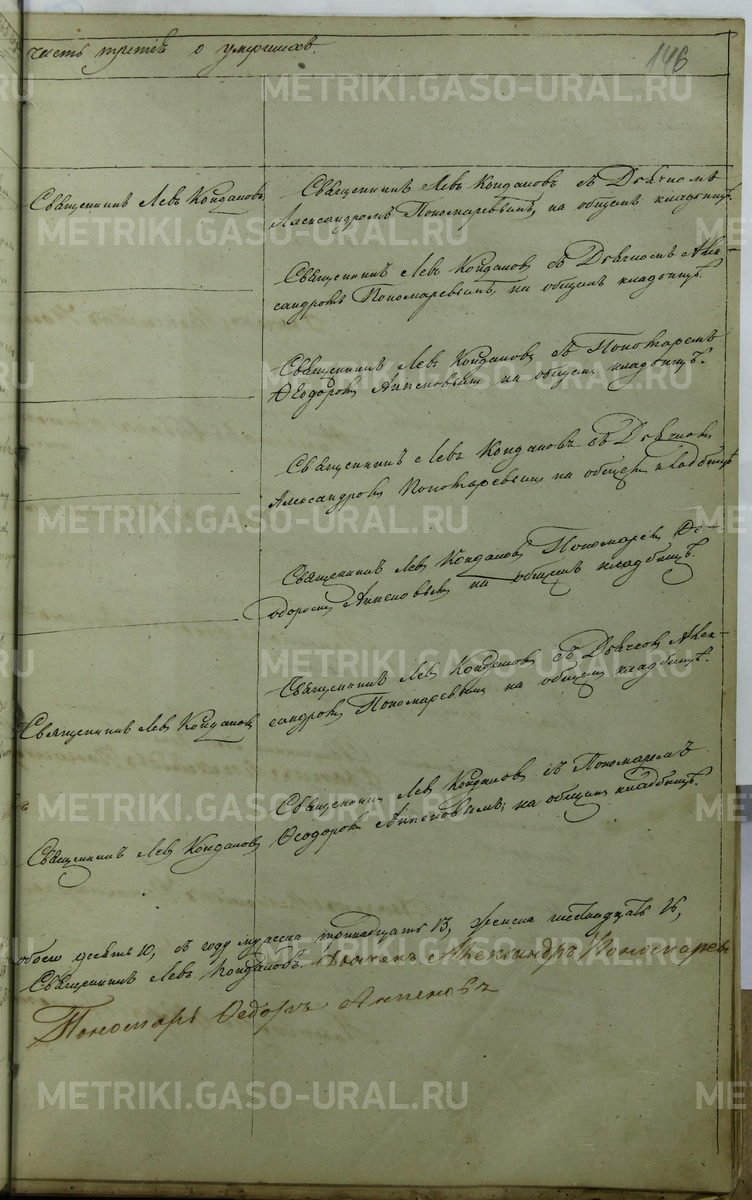 часть третія о умершихъ.
146
Священникъ Левъ Кондаковъ
Священникъ Левъ Кондаковъ съ Дьячкомъ
Александромъ Пономаревымъ, на общемъ кладбищѣ.
Священникъ Левъ Кондаковъ съ Дьячкомъ Алек-
сандромъ Пономаревымъ, на общемъ кладбищѣ.
Священникъ Левъ Кондаковъ съ Пономаремъ
Ѳеодоромъ на общемъ кладбищѣ.
Священникъ Левъ Кондаковъ съ Дьячкомъ
Александромъ Пономаревымъ на общемъ кладбищѣ
Священникъ Левъ Кондаковъ Пономаремъ Ѳе-
одоромъ на общемъ кладбищѣ.
Священникъ Левъ Кондаковъ
Священникъ Левъ Кондаковъ съ Дьячкомъ Алек-
сандромъ Пономаревымъ на общемъ кладбищѣ.
Священникъ Левъ Кондаковъ
Священникъ Левъ Кондаковъ съ Пономаремъ
Ѳеодоромъ на общемъ кладбищѣ.
обоего десять 10, въ году мужеска тринадцать 13, женска шестнадцать 16,
Священникъ Левъ Кондаковъ. Дьячекъ Александръ Пономаревъ
Пономарь Ѳедоръ
METRIKI.GASO-URAL.RU